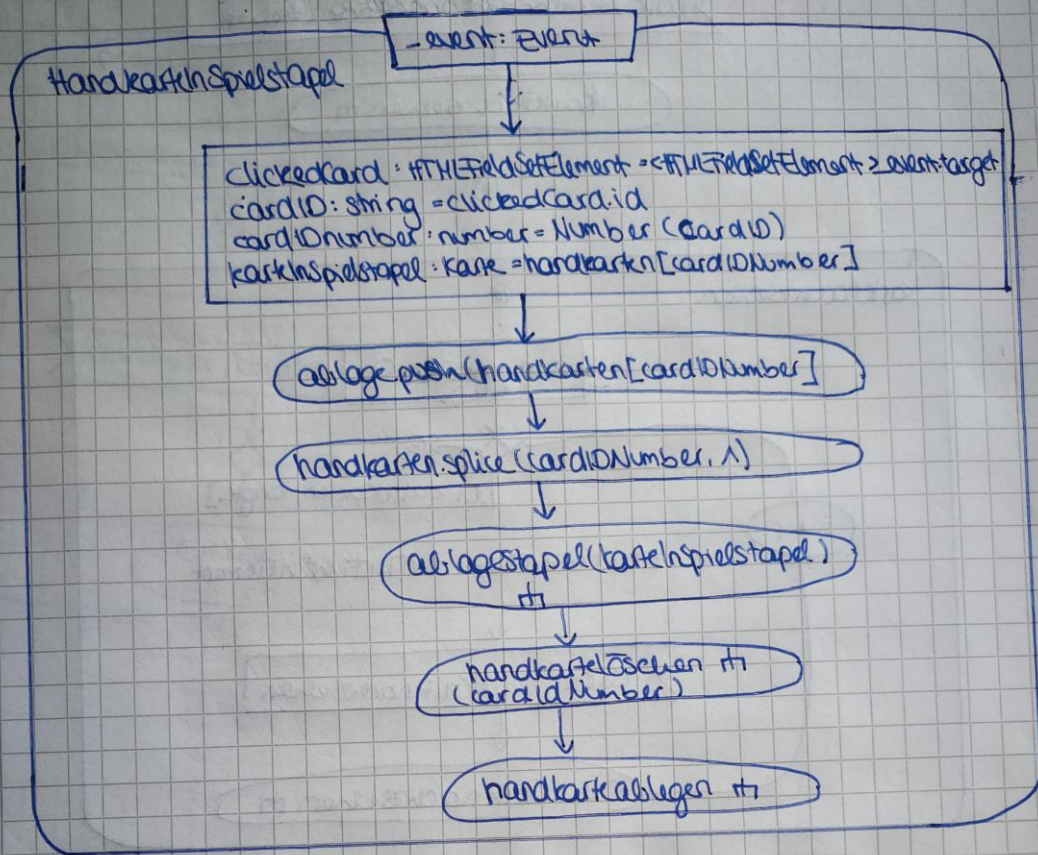 _event: Event
HandkarteInSpielstapel
clickedCard: HTMLFieldSetElement = <HTMLFieldSetElement> _event.target
cardID: string = clickedCard.id
cardIDnumber: number = Number (cardID)
karteInSpielstapel: Karte = handkarten[cardIDNumber]
ablage.push(handkarten[cardIDNumber]
handkarten.splice(cardIDNumber, 1)
ablagestapel(karteInSpielstapel)
handkartelöschen
(cardIdNumber)
handkarteablegen